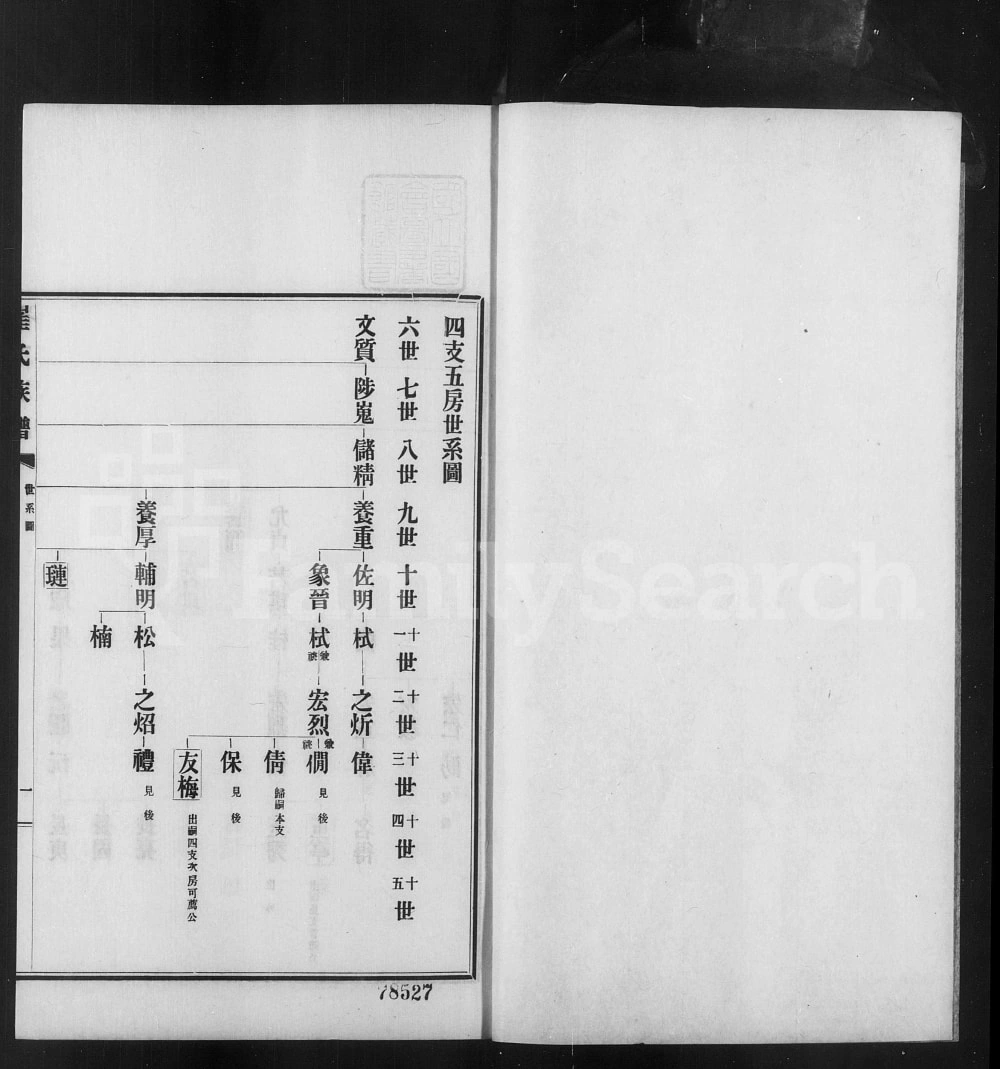 四支五房世系圖
六世 七世 八世 九世 十世 十一世 十二世 十三世 十四世 十五世
文質 陟嵬 儲精 養重 佐明 栻 之炘 偉
象晉 栻 兼祧 宏烈 兼祧 僩 見後
倩 歸嗣本支
保 見後
友梅 出嗣四支次房可薦公
養厚 輔明 松 之炤 禮 見後
楠
璉
氏族譜 世系圖 一
78527
FamilySearch